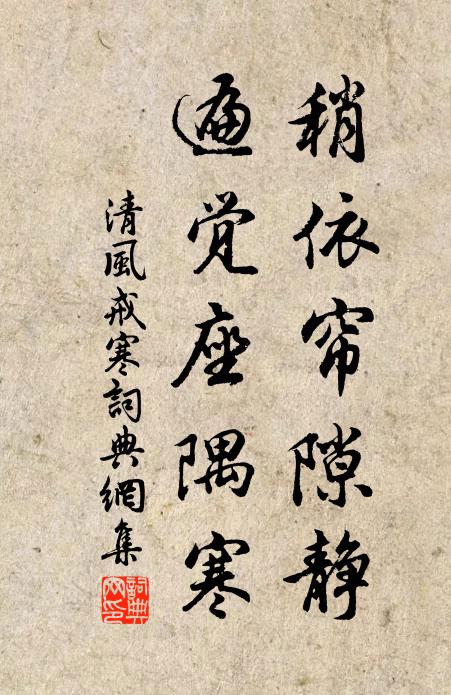 稍依帘隙静
遍觉座隅寒
清風戒寒詞典網集
詞典